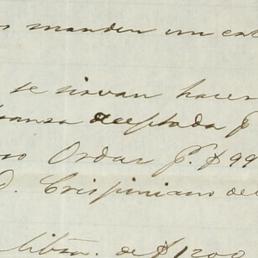 s manden un cat
se sirvan hacer
branza aceptada p
so Ordas pr. $99
D. Crispiniano del
libra. de $1200